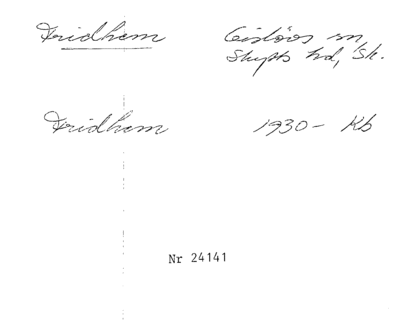 Fridhem Gislövs sn
Skytts hd, Sk.
Fridhem 1930- Kb
Nr 24141